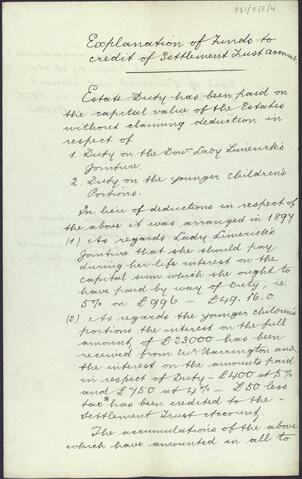 P51/5/5/4
Explanation of Funds to
credit of Settlement Trust Account
Estate Duty has been paid on
the capital value of the Estates
without claiming deduction in
respect of
1. Duty on the Dowr Lady Limerick's
Jointure.
2. Duty on the younger Children's
Portions.
In lieu of deductions in respect of
the above it was arranged in 1897
(1) As regards Lady Limerick's
Jointure that she should pay
during her life interest on the
capital sum which she ought to
have paid by way of Duty, i.e.
5% on £996 – £49.16.0.
(2) As regards the younger children's
portions the interest on the full
amount of £23000 has been
received from Mr Barrington and
the interest on the amounts paid
in respect of Duty – £400 at 5%
and £750 at 4% – £50 less
tax has been credited to the
Settlement Trust Account
The accumulations of the above
which have amounted in all to